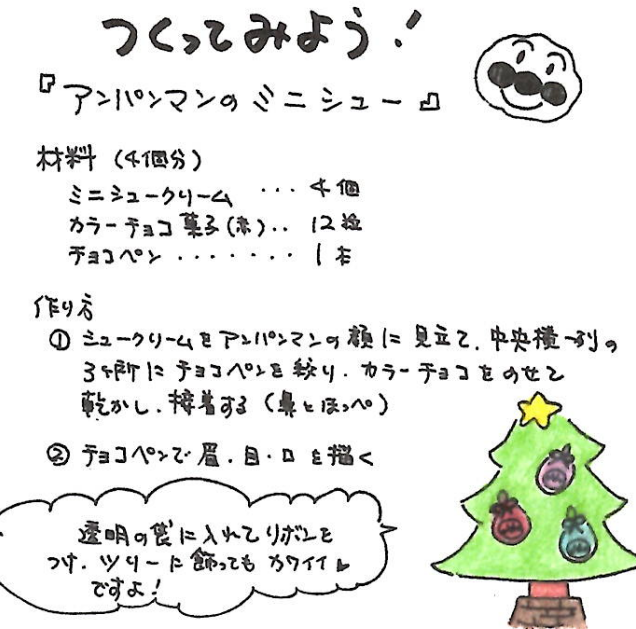 つくってみよう!
『アンパンマンのミニシュー』
材料(4個分)
ミニシュークリーム ･･･ 4個
カラーチョコ菓子(赤)･･ 12粒
チョコペン ･･･････ 1本
作り方
① シュークリームをアンパンマンの顔に見立て、中央横一列の
3ヶ所にチョコペンを絞り、カラーチョコをのせて
乾かし、接着する(鼻とほっぺ)
② チョコペンで眉、目、口を描く
透明の袋に入れてリボンを
つけ、ツリーに飾ってもカワイイ
ですよ!